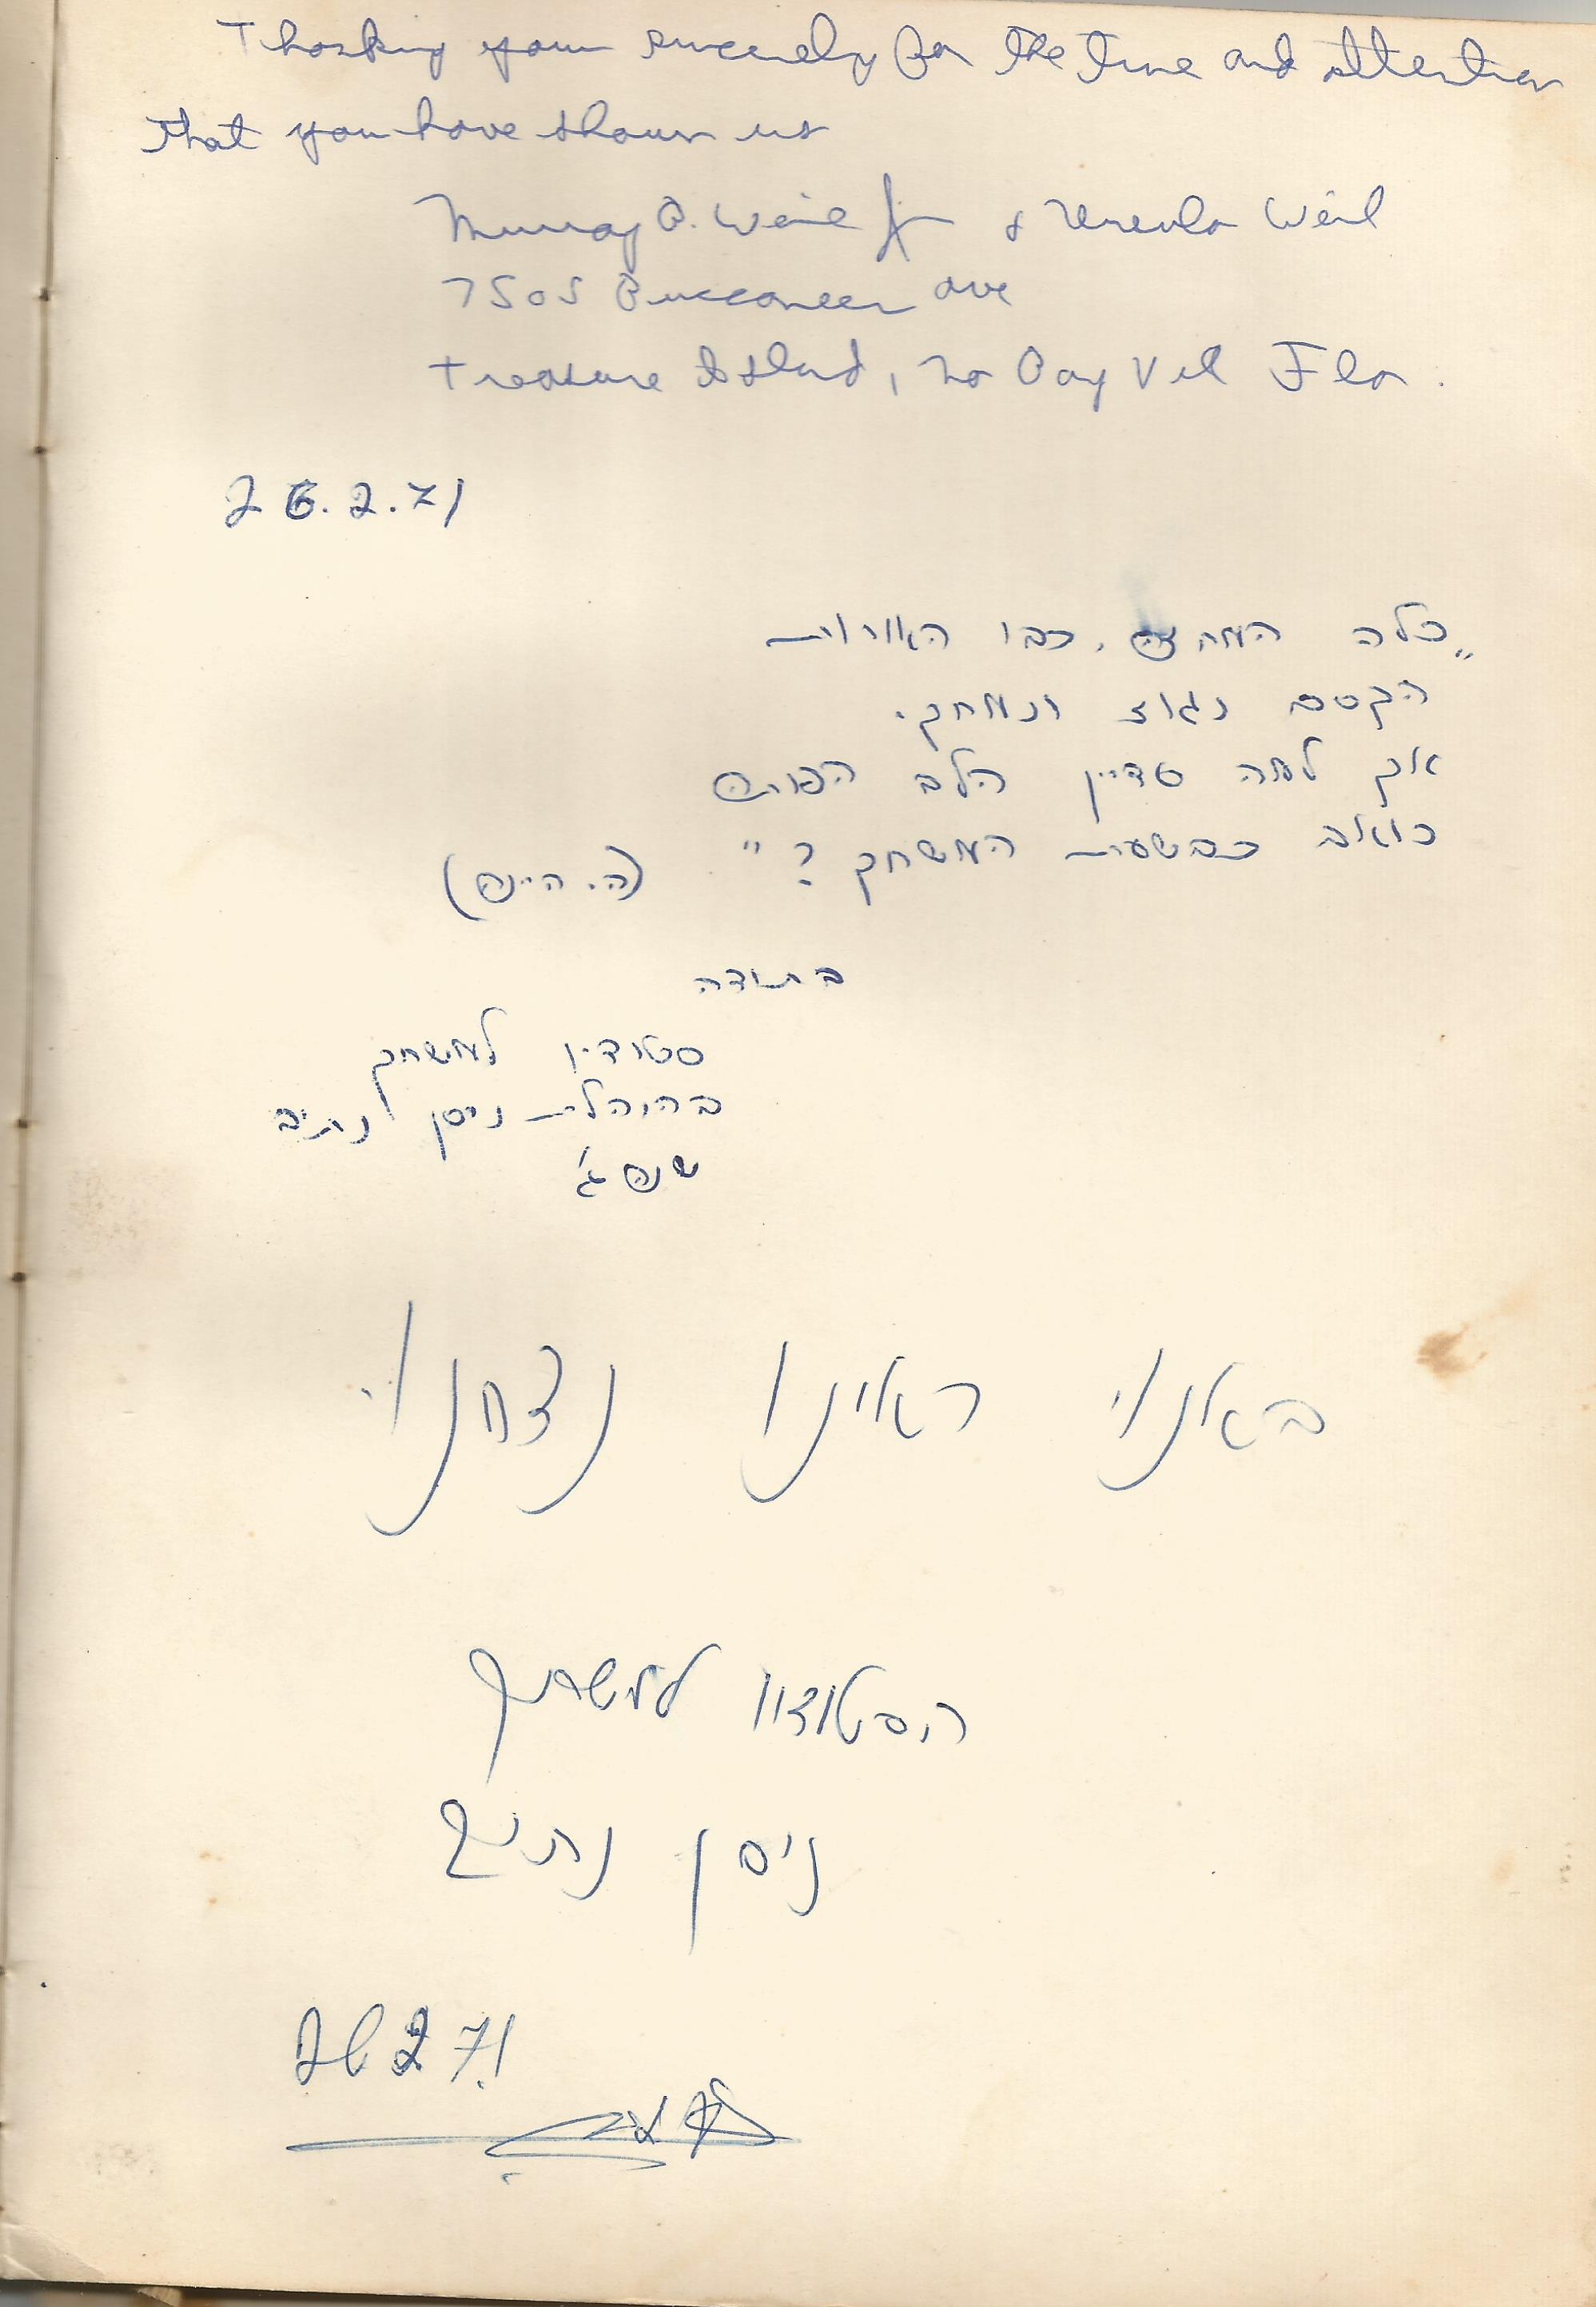 Thanking your sincerely for the time and attention
that you have shown us
Murray B. Weil Jr & Ursula Weil
7505 Buccaneer ave
Treasure Island, No Bay Vil Fla.
26.2.71
"כלה המחזה, כבו האורות
הקסם נגוז ונמחק.
אך למה עדיין הלב הפותה
כואב כבשעת המשחק?" (ה. היינה)
בתודה
סטודיו למשחק
בהנהלת ניסן נתיב
שנה ג'
באנו ראינו נצחנו
הסטודיו למשחק
ניסן נתיב
26 2 71